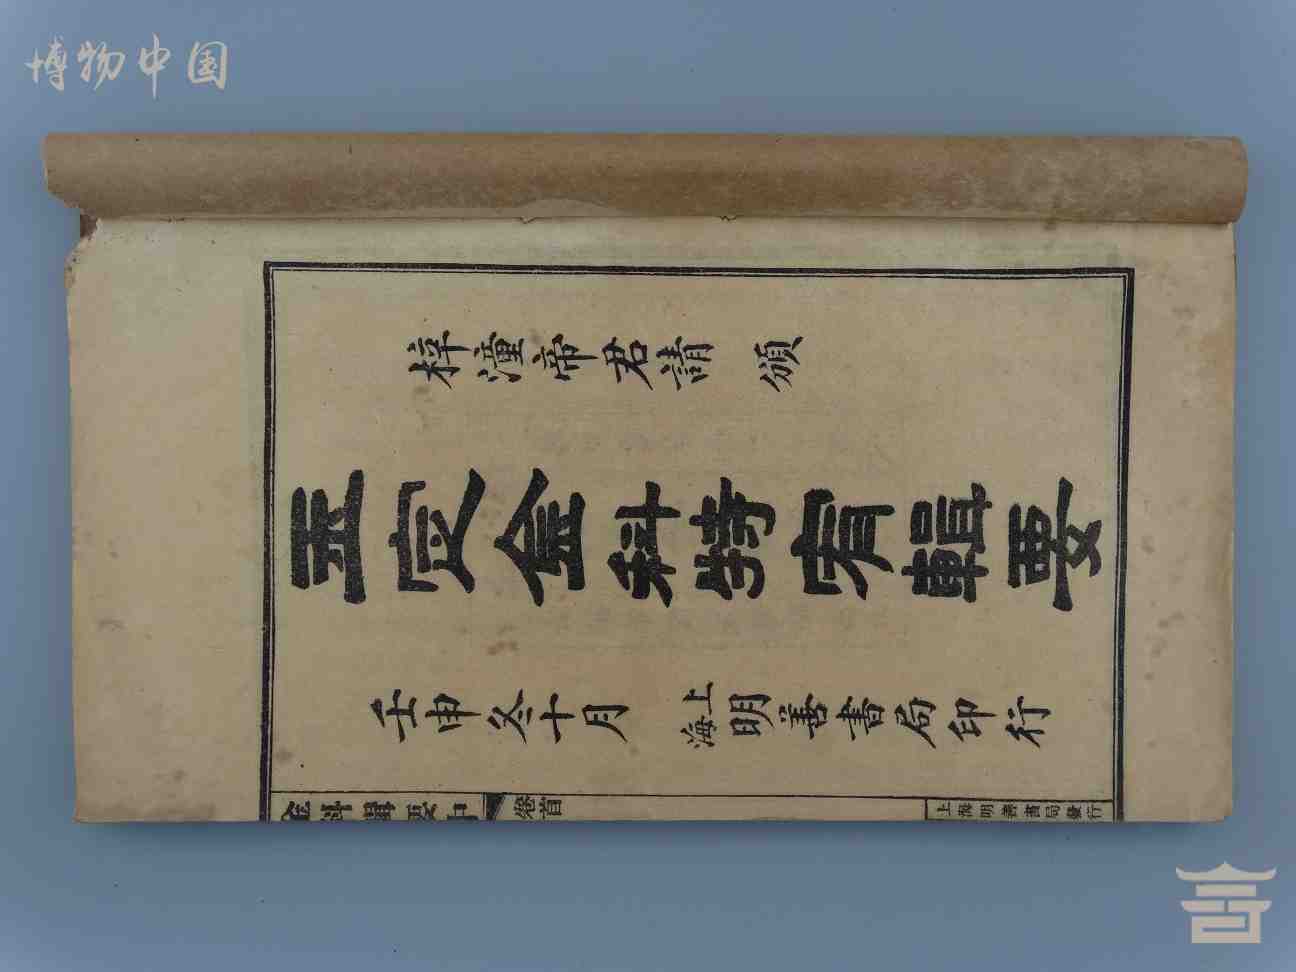 博物中国
梓潼帝君請頒
玉定金科特宥輯要
壬申冬十月 上海明善書局印行
金科輯要 卷首 上海明善書局發行